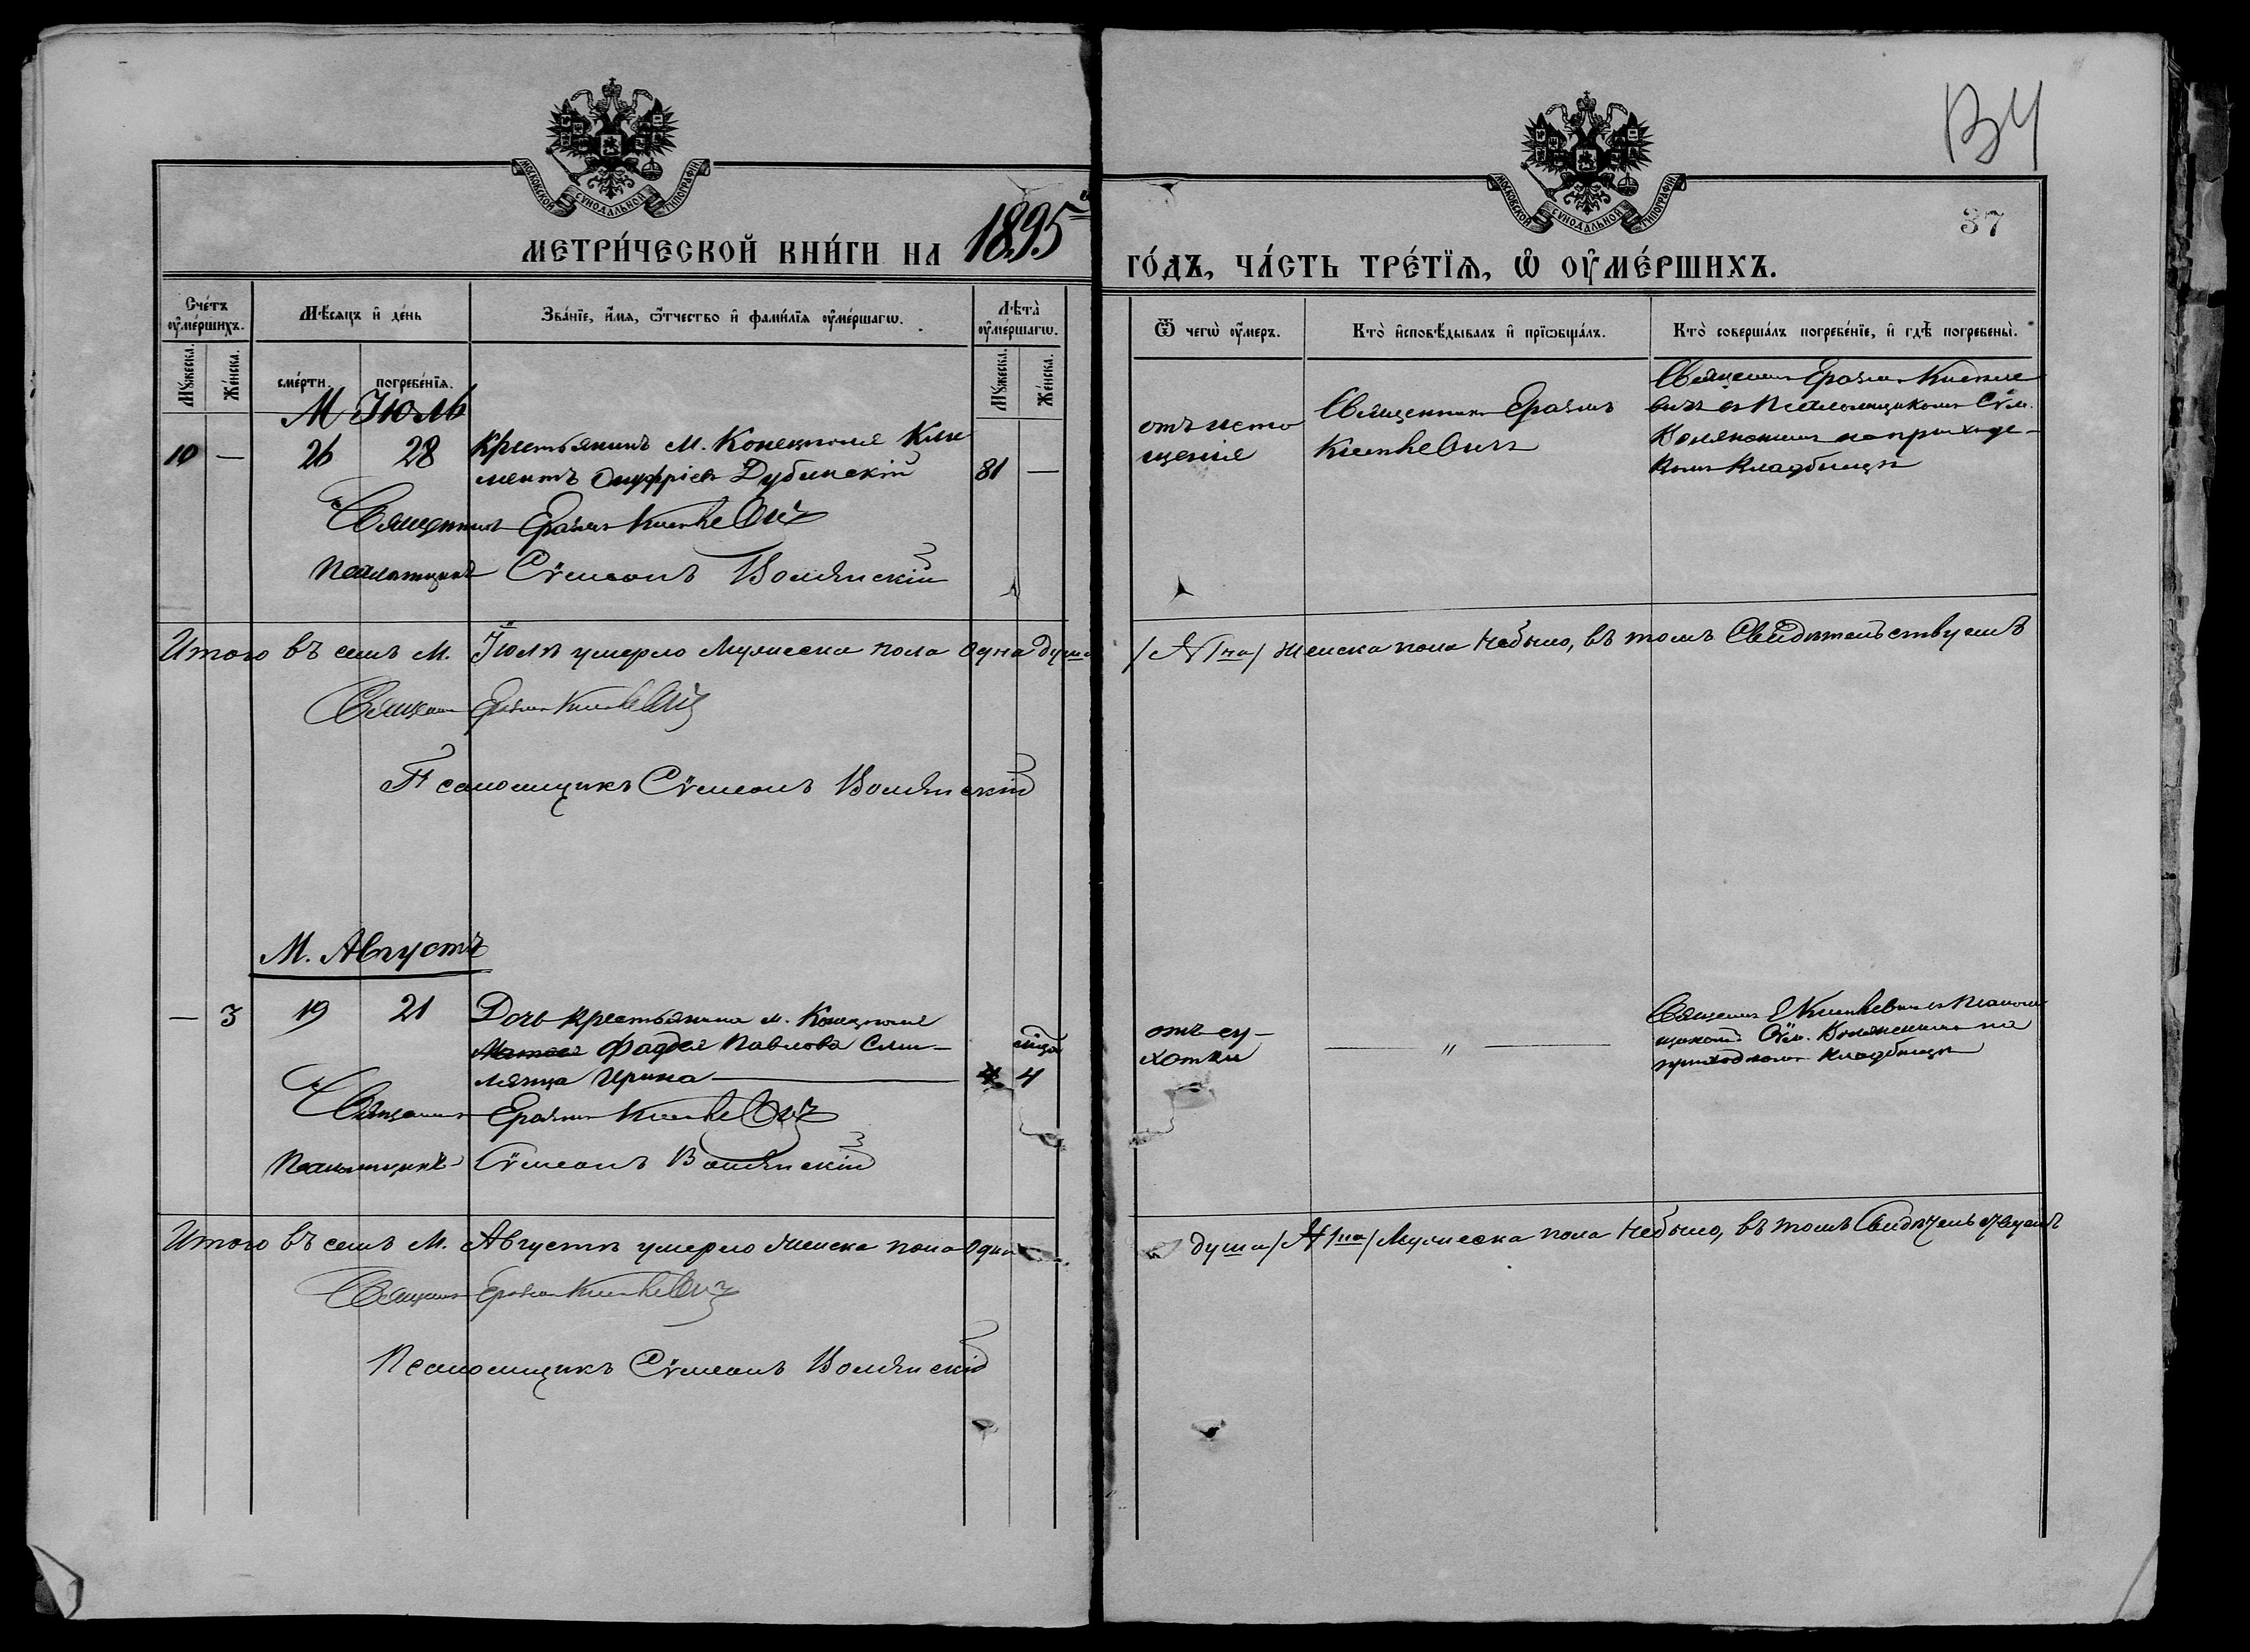 134
37
МОСКОВСКОЙ СУНОДАЛЬНОЙ ТИПОГРАФІИ
МОСКОВСКОЙ СУНОДАЛЬНОЙ ТИПОГРАФІИ
МЕТРИ́ЧЕСКОЙ КНИ́ГИ НА 1895й
ГО́ДЪ, ЧА́СТЬ ТРЕ́ТІѦ, Ѽ ОУ҆МЕ́РШИХЪ.
Сче́тъ оу҆ме́ршихъ.
Мꙋжеска.
Же́нска.
Мѣ́сяцъ и҆ де́нь
сме́рти.
погребе́нїѧ.
Зва́нїе, и҆́мѧ, ѻ҆́тчество и҆ фами́лїѧ оу҆ме́ршагѡ.
Лѣта̀ оу҆ме́ршагѡ.
Мꙋжеска.
Же́нска.
Ѿ чегѡ̀ оу҆́меръ.
Кто̀ и҆сповѣ́дывалъ и҆ прїѡбща́лъ.
Кто̀ соверша́лъ погребе́нїе, и҆ гдѣ̀ погребены̀.
М Іюль
10 — 26 28 Крестьянинъ м. Конецполя Кли
ментъ Онуфріевъ Дубинскій 81 —
отъ исто
щенія
Священникъ Еразмъ
Священникъ Еразмъ
вичъ съ Псаломщикомъ Сѵм.
Волянскимъ на приходс-
комъ кладбищѣ
Священникъ Еразмъ
Псаломщикъ Сѵмеонъ Волянскій
Итого въ семъ М. Іюлѣ умерло мужеска пола одна душа
/№ 1на/ женска пола небыло, въ томъ Свидѣтельствуемъ
Священникъ Еразмъ
Псаломщикъ Сѵмеонъ Волянскій
М. Августъ
— 3 19 21 Дочь крестьянина м. Конецполя
Фаддея Павлова Сли-
мянца Ирина — 4
отъ су-
хотки
— " —
съ Псалом-
щикомъ Сѵм. Волянскимъ на
приходскомъ кладбищѣ
Священникъ Еразмъ
Псаломщикъ Сѵмеонъ Волянскій
Итого въ семъ М. Августѣ умерло женска пола одна
душа /№ 1на/ Мужеска пола небыло, въ томъ Свидѣтельствуемъ
Священникъ Еразмъ
Псаломщикъ Сѵмеонъ Волянскій